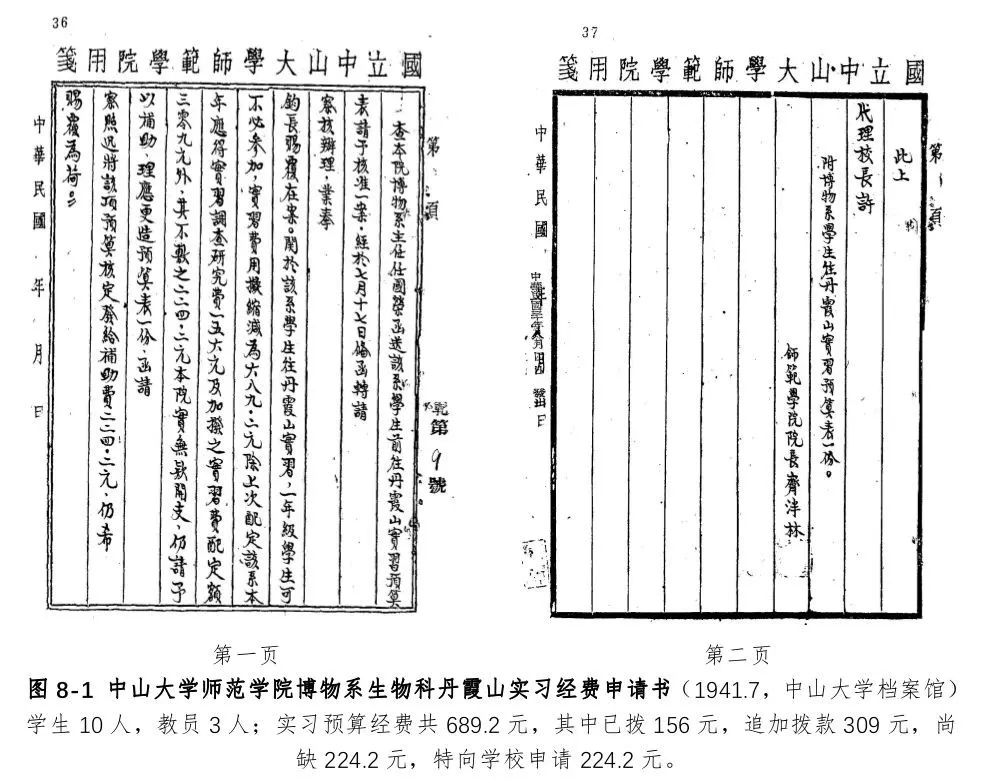 36
國立中山大學師範學院用箋
第 頁
範第9號
查本院博物系主任任國榮函送該系學生前往丹霞山實習預算
表請予核准一案,經於七月十七日備函轉請
察核辦理,業奉
鈞長賜覆在案。關於該系學生往丹霞山實習,一年級學生可
不必參加,實習費用擬縮減為六八九.二元除上次配定該系本
年應得實習調查研究費一五六元及加撥之實習費配定額
三零九元外,其不敷之二二四.二元本院實無款開支、仍請予
以補助、理應更造預算表一份、函請
察照迅將該項預算核定發給補助費二二四.二元,仍希
賜覆為荷。
中華民國 年 月 日
37
國立中山大學師範學院用箋
第 頁
此上
代理校長許
附博物系學生往丹霞山實習預算表一份。
師範學院院長齊泮林
中華民國
日
第一页
第二页
图 8-1 中山大学师范学院博物系生物科丹霞山实习经费申请书（1941.7，中山大学档案馆）
学生 10 人，教员 3 人；实习预算经费共 689.2 元，其中已拨 156 元，追加拨款 309 元，尚
缺 224.2 元，特向学校申请 224.2 元。